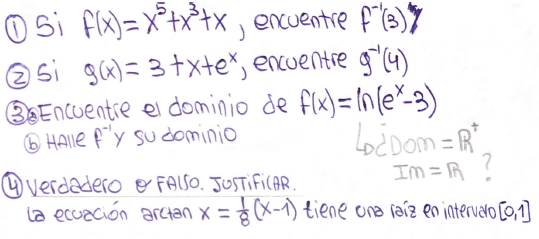 ① Si f(x)=x⁵+x³+x, encuentre f⁻¹(3)
② Si g(x)=3+x+eˣ, encuentre g⁻¹(4)
③ a Encuentre el dominio de f(x)=ln(eˣ-3)
ⓑ Halle f⁻¹ y su dominio
↳ ¿Dom = ℝ⁺
Im = ℝ ?
④ Verdadero o Falso. Justificar.
La ecuación arctan x = 1/8 (x-1) tiene una raíz en intervalo [0,1]